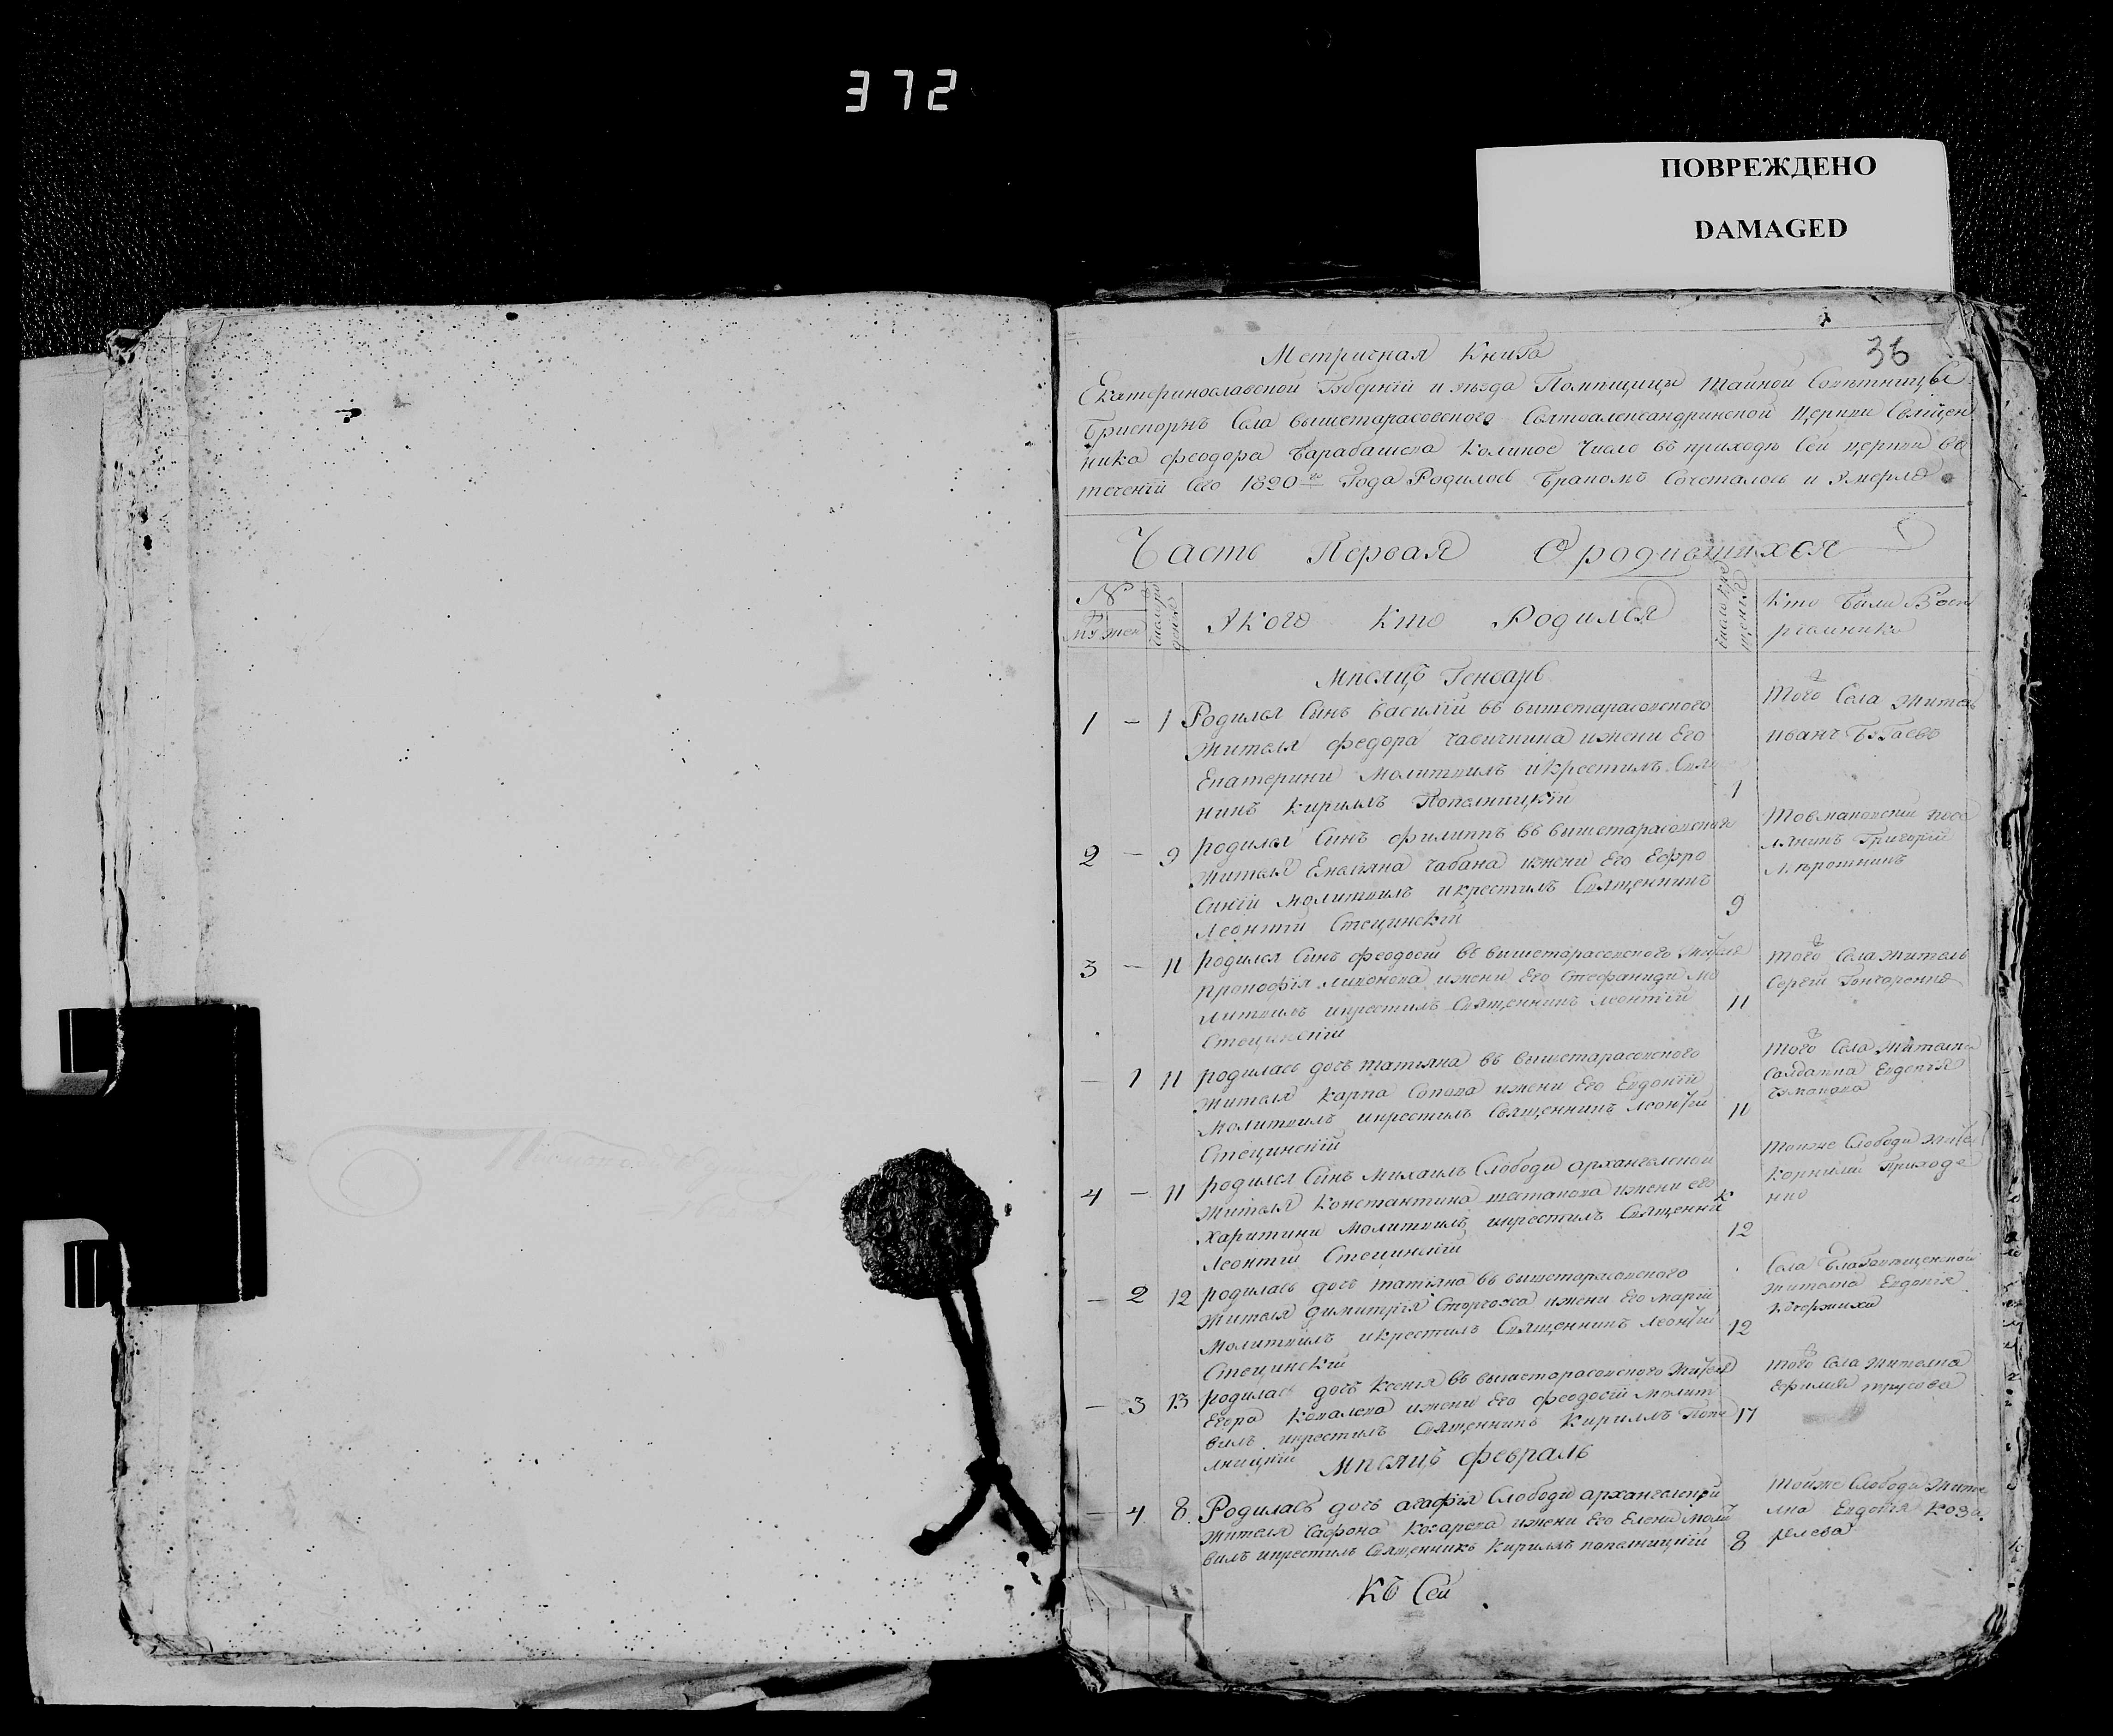 372
ПОВРЕЖДЕНО
DAMAGED
36
Метричная Книга
Екатеринославской Губерніи и уезда Помещицы тайной Советницы
села вышетарасовского Святоалександринской Церкви Священ
ника Феодора Барабашева Коликое Число въ приходе Сей церкви въ
теченіи Сего 1820го Года Родилось Бракомъ Сочеталось и Умерло
Часть Первая О родившихся
№
муж жен
число рождения
У кого кто Родился
число крещения
Кто Были Вос
приемники
Месяцъ Генварь
1 — 1 Родился Синъ Василій въ вишетарасовского
жителя федора и жени Его
Екатерини Молитвилъ и крестилъ Свя
1
никъ Кирилъ Попелницкій
Того Села житель
иванъ Бугаевъ
2 — 9 родился Синъ филиппъ въ вишетарасовского
жителя Емеляна чабана и жени Его Ефро
Синіи Молитвилъ и крестилъ Священникъ
9
Леонтій Стецинскій
посе
лянинъ Григорій
3 — 11 родился Синъ феодосій въ вишетарасовского жителя
прокофія и жени Его Стефаниди Мо
литвилъ и крестилъ Священникъ Леонтій
11
Стецинскій
того Села житель
Сергій Гончаренко
— 1 11 родилась дочь татіяна въ вишетарасовского
жителя Карпа и жени Его Евдокіи
Молитвилъ и крестилъ Священникъ Леонтій
11
Стецинскій
того Села жителка
Салдатка Евдокія
4 — 11 родился Синъ Михаилъ Слободи архангелской
жителя Константина и жени его
Харитини Молитвилъ и крестилъ Священни
к
12
Леонтій Стецинскій
Тойже Слободи жител
Корнилій Приходе
нко
— 2 12 родилась дочь татіяна въ вишетарасовского
жителя димитрія Сторожа и жени Его маріи
Молитвилъ и крестилъ Священникъ Леонтій
12
Стецинскій
Села Благовещенкой
жителка Евдокія
— 3 13 родилась дочь Ксенія въ вишетарасовского жителя
Егора Ковалева и жени Его феодосіи Молит
вилъ и крестилъ Священникъ Кирилъ Попе
17
лницкій
того Села жителка
трусова
Месяцъ февраль
— 4 8 Родилась дочь агафія Слободи архангелской
жителя Сафона и жени Его Елени Моли
вилъ и крестилъ Священникъ Кирилъ попелницкій
8
Тойже Слободи жите
лка Евдокія Коза
релева
Къ Сей